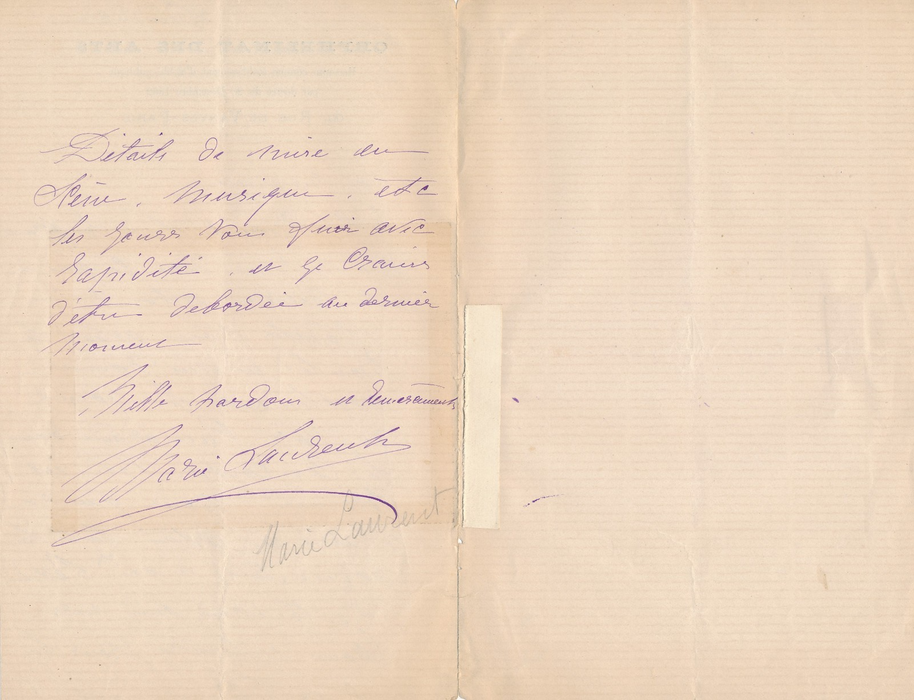 Détails de mise en
Scène, Musique, etc
les jours vous fuir avec
rapidité, et je crains
d'être debordée au dernier
moment
Mille pardons et remerciements
Marie Laurent
Marie Laurent